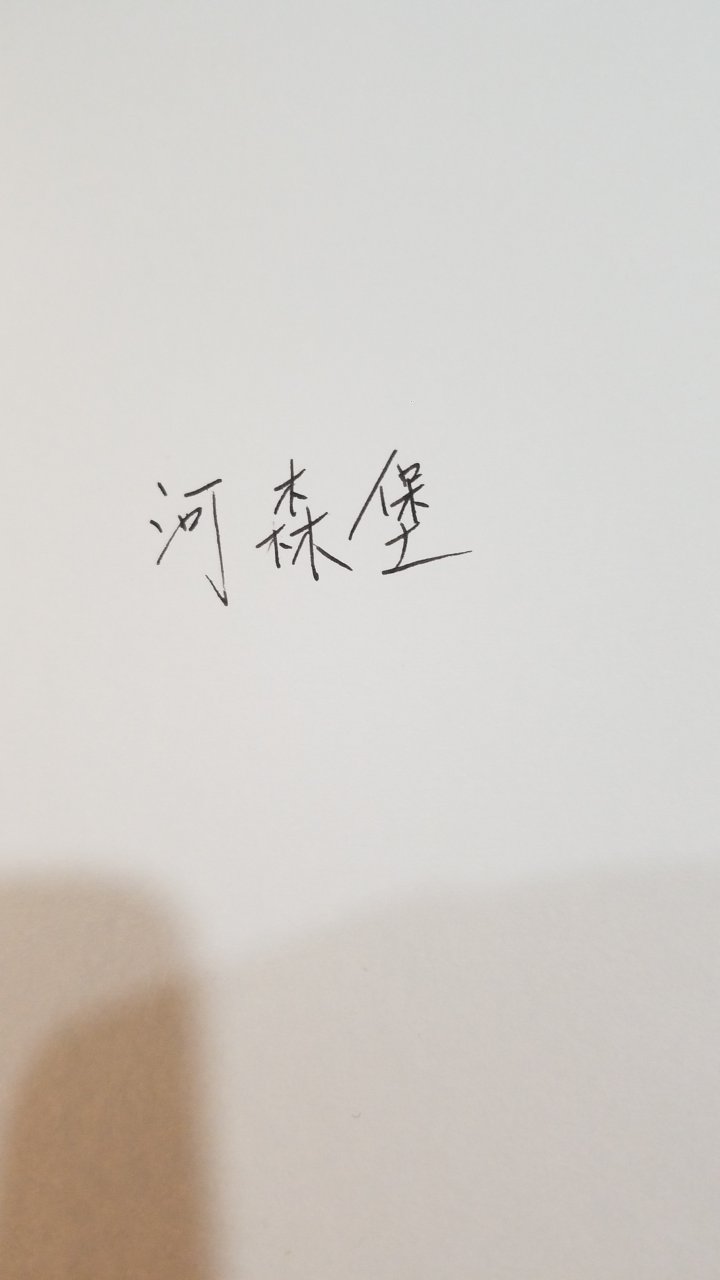 河森堡